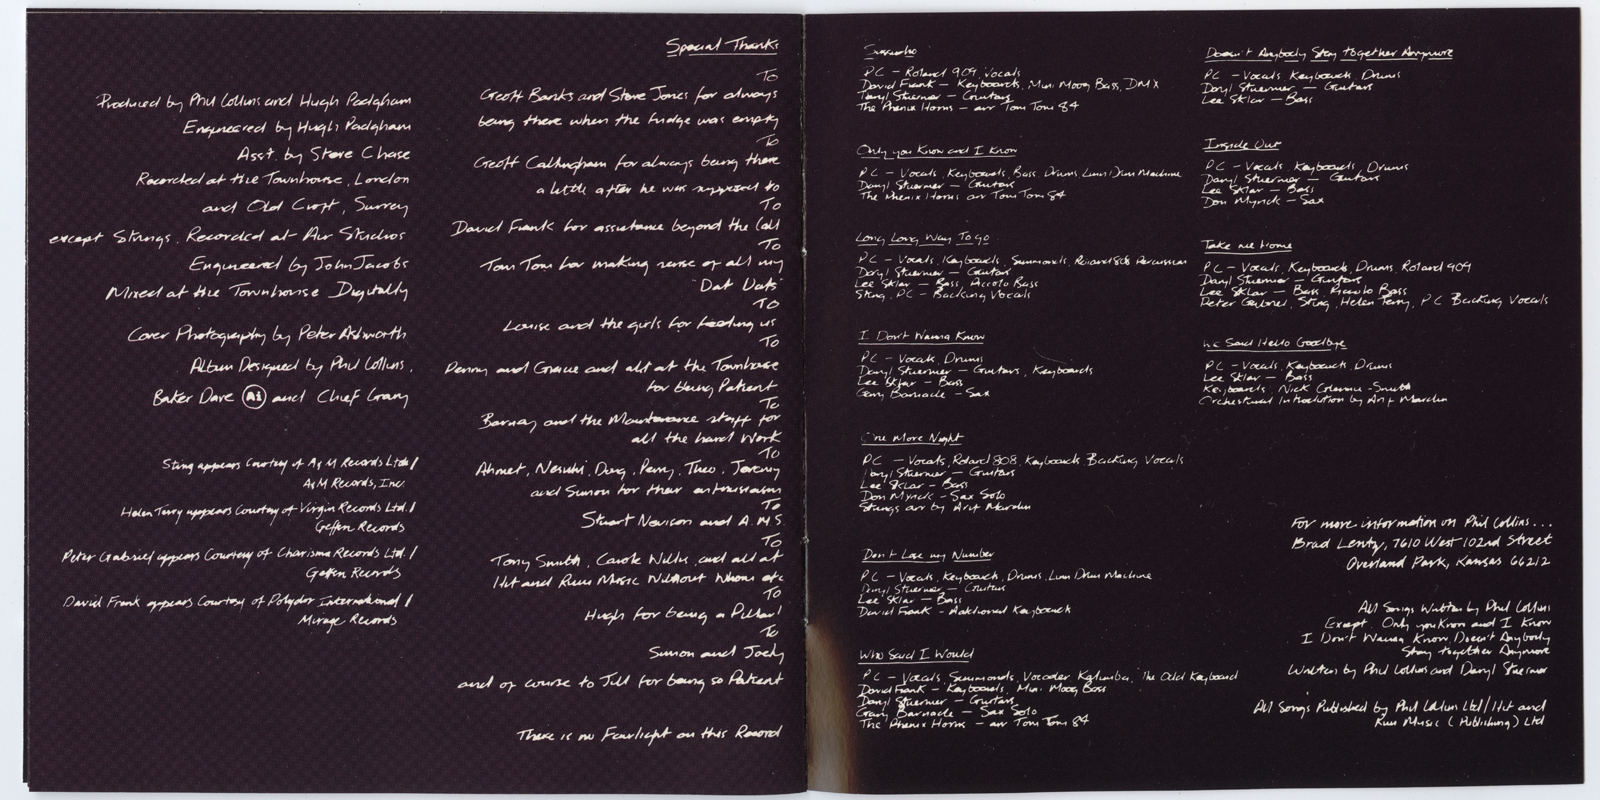 Produced by Phil Collins and Hugh Padgham
Engineered by Hugh Padgham
Asst. by Steve Chase
Recorded at the Townhouse, London
and Old Croft, Surrey
except Strings, Recorded at Air Studios
Engineered by John Jacobs
Mixed at the Townhouse Digitally
Cover Photography by Peter Ashworth
Album Designed by Phil Collins,
Baker Dave Ai and Chief Grany
Sting appears Courtesy of A&M Records Ltd/
A&M Records, Inc.
Helen Terry appears Courtesy of Virgin Records Ltd/
Geffen Records
Peter Gabriel appears Courtesy of Charisma Records Ltd/
Geffen Records
David Frank appears Courtesy of Polydor International/
Mirage Records
Special Thanks
To
Geoff Banks and Steve Jones for always
being there when the fridge was empty
To
Geoff Callingham for always being there
a little after he was supposed to
To
David Frank for assistance beyond the Call
To
Tom Tom for making sense of all my
'Dat Dats'
TO
Louise and the girls for feeding us
To
Penny and Gracie and all at the Townhouse
for being Patient
To
Barney and the Maintenance staff for
all the hard Work
To
Ahmet, Nesuhi, Doug, Perry, Theo, Jeremy
and Simon for their enthusiasm
To
Stuart Nevison and A.M.S.
To
Tony Smith, Carole Willis, and all at
Hit and Run Music Without Whom etc
TO
Hugh for being a Pillar!
To
Simon and Joely
and of course to Jill for being so Patient
There is no Fairlight on this Record
Sussudio
PC - Roland 909, Vocals
David Frank - Keyboards, Mini Moog Bass, DMX
Daryl Stuermer - Guitars
The Phenix Horns - arr Tom Tom 84
Only you Know and I Know
PC - Vocals, Keyboards, Bass, Drums, Linn Drum Machine
Daryl Stuermer - Guitars
The Phenix Horns arr Tom Tom 84
Long Long Way To go
PC - Vocals, Keyboards, Simmonds, Roland 808 Percussion
Daryl Stuermer - Guitars
Lee Sklar - Bass, Piccolo Bass
Sting, PC - Backing Vocals
I Don't Wanna Know
PC - Vocals, Drums
Daryl Stuermer - Guitars, Keyboards
Lee Sklar - Bass
Gary Barnacle - Sax
One More Night
PC - Vocals, Roland 808, Keyboards Backing Vocals
Daryl Stuermer - Guitars
Lee Sklar - Bass
Don Myrick - Sax Solo
Strings arr by Arif Mardin
Don't Lose my Number
PC - Vocals, Keyboards, Drums, Linn Drum Machine
Daryl Stuermer - Guitars
Lee Sklar - Bass
David Frank - Additional Keyboards
Who Said I Would
PC - Vocals Simmonds, Vocoder Kalimba, The Odd Keyboard
David Frank - Keyboards, Mini Moog Bass
Daryl Stuermer - Guitars
Gary Barnacle - Sax Solo
The Phenix Horns - arr Tom Tom 84
Doesn't Anybody Stay together Anymore
PC - Vocals Keyboards Drums
Daryl Stuermer - Guitars
Lee Sklar - Bass
Inside Out
PC - Vocals Keyboards, Drums
Daryl Stuermer - Guitars
Lee Sklar - Bass
Don Myrick - Sax
Take me Home
PC - Vocals, Keyboards, Drums, Roland 909
Daryl Stuermer - Guitars
Lee Sklar - Bass Piccolo Bass
Peter Gabriel, Sting, Helen Terry, PC Backing Vocals
We Said Hello Goodbye
PC - Vocals, Keyboards Drums
Lee Sklar - Bass
Keyboards, Nick Glennie-Smith
Orchestral Introdution by Arif Mardin
For more information on Phil Collins...
Brad Lentz, 7610 West 102nd Street
Overland Park, Kansas 66212
All Songs Written by Phil Collins
Except, Only you Know and I Know
I Don't Wanna Know, Doesn't Anybody
Stay together Anymore
Written by Phil Collins and Daryl Stuermer
All Songs Published by Phil Collins Ltd/Hit and
Run Music (Publishing) Ltd